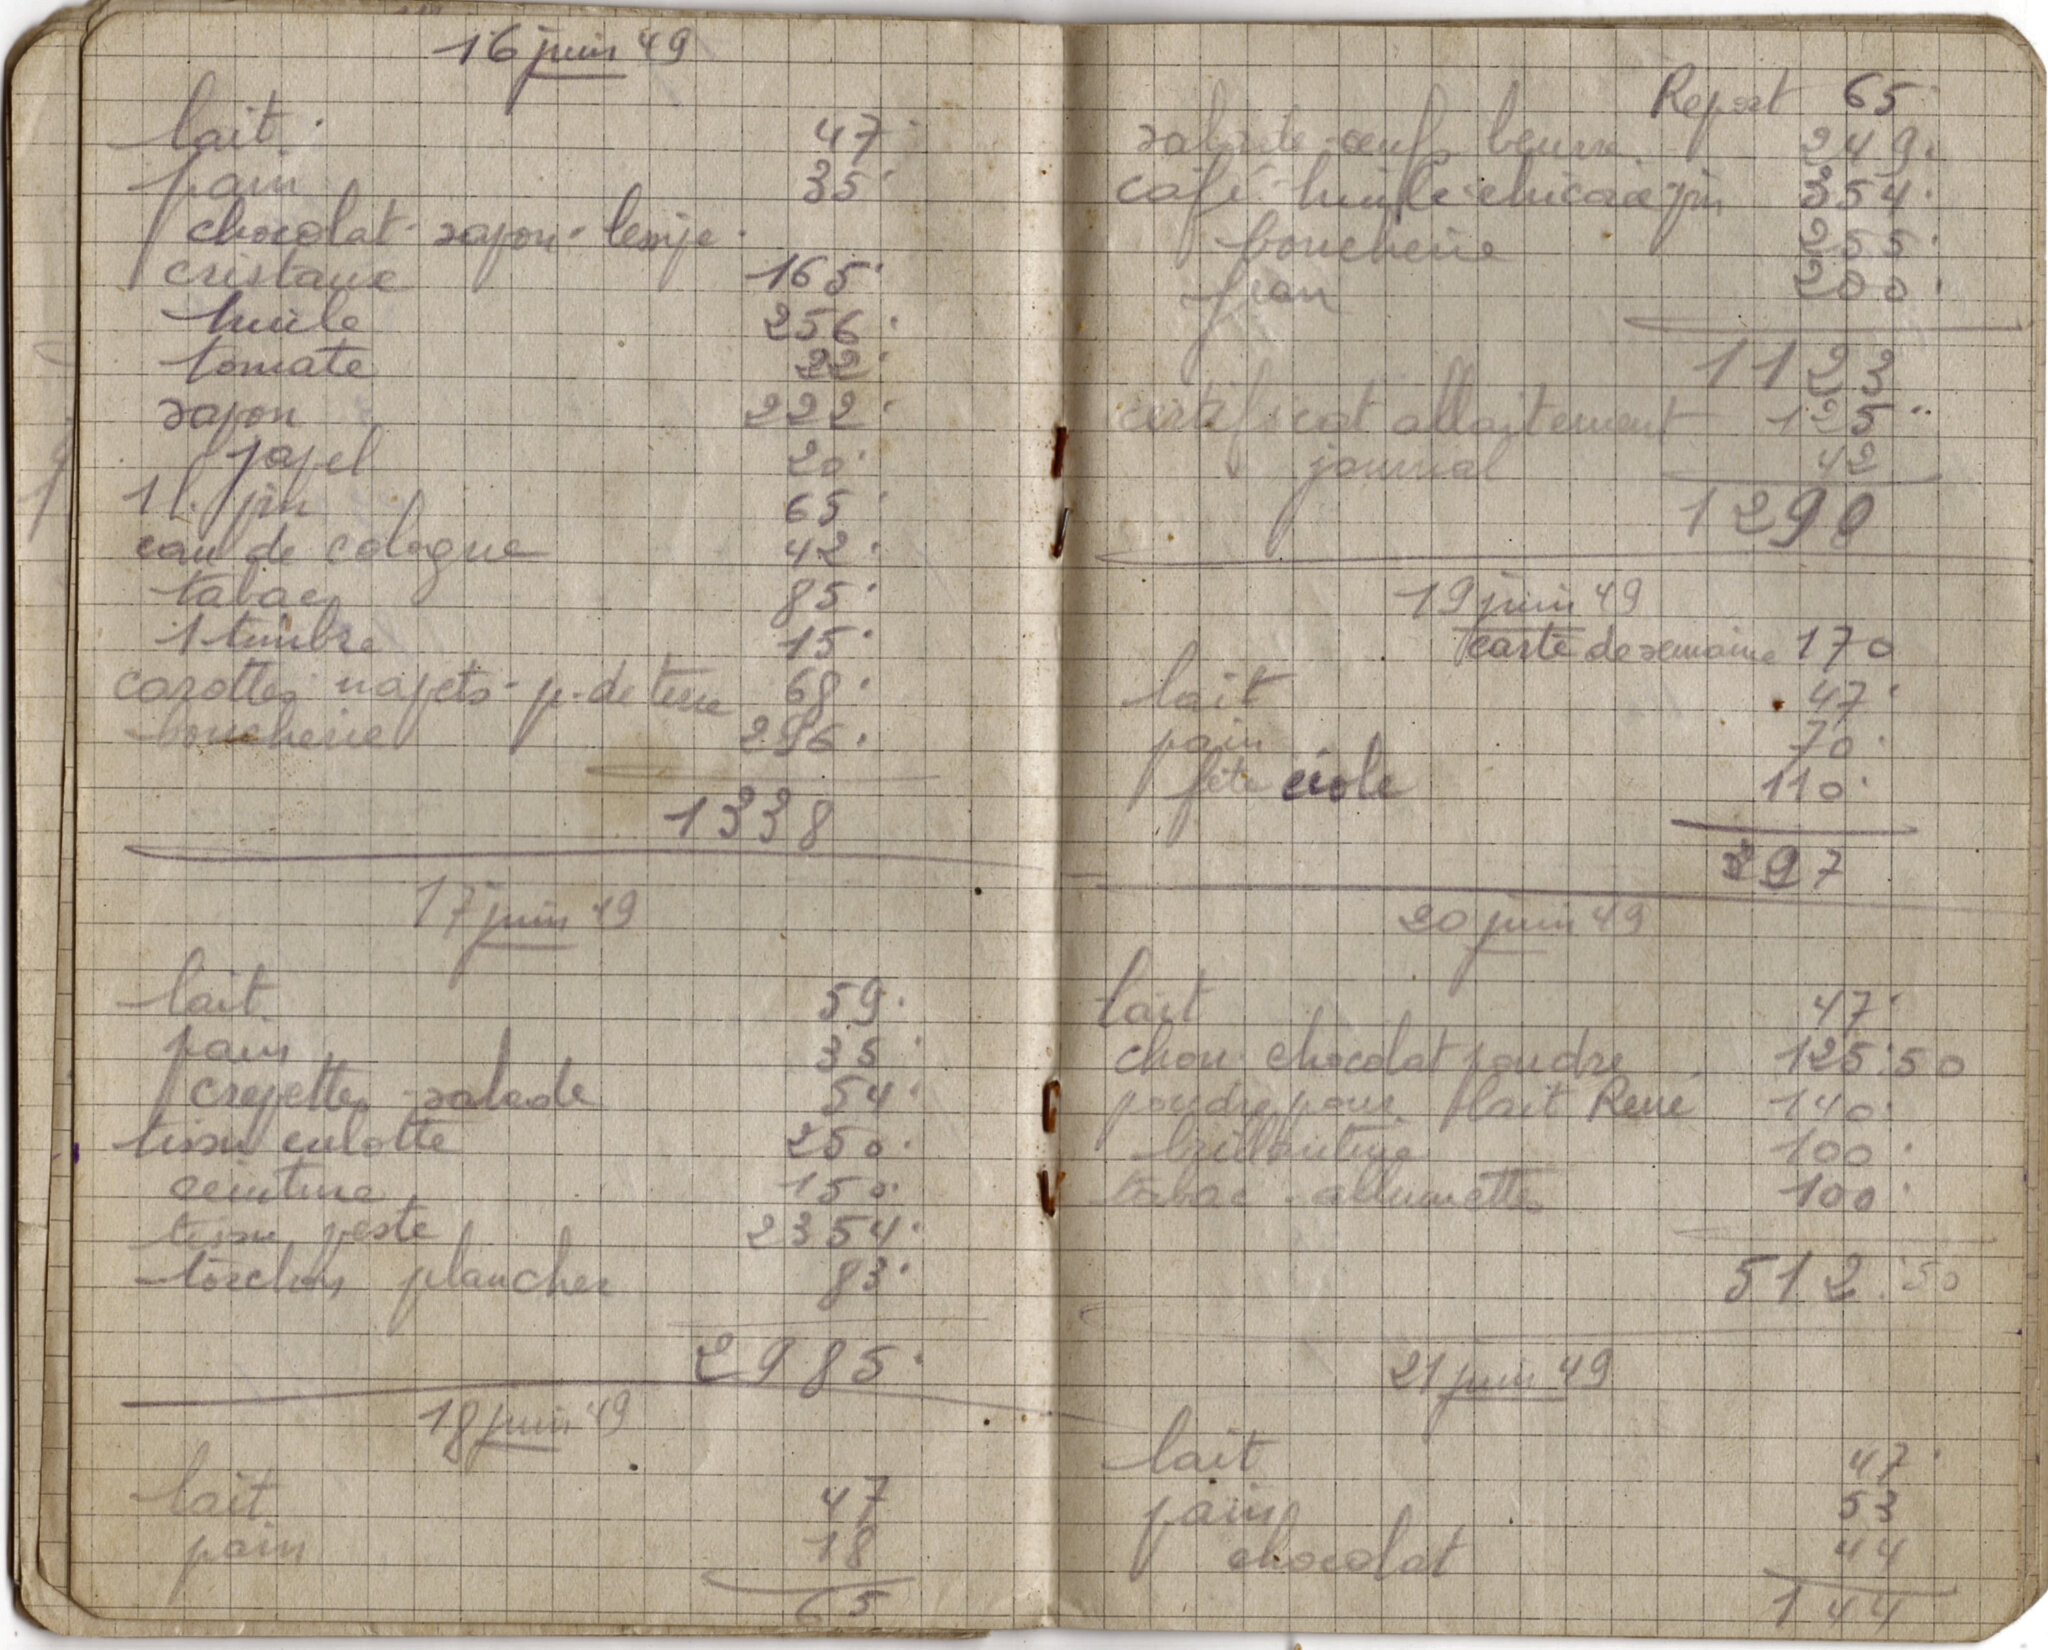 16 juin 49
lait 47
pain 35
chocolat - savon - lessive
cristaux 165
huile 256
tomate 22
savon 222
papel 20
1 l. vin 65
eau de cologne 42
tabac 85
1 timbre 15
carottes navets - p. de terre 68
boucherie 296
1338
17 juin 49
lait 59
pain 35
crepettes - salade 54
tissu culotte 250
ceinture 150
tissu veste 2354
torchon plancher 83
2985
18 juin 49
lait 47
pain 18
65
Report 65
salade - oeufs beurre 249
café - huile - chicorée vin 354
boucherie 255
200
1123
certificat allaitement 125
journal 42
1290
19 juin 49
carte de semaine 170
lait 47
pain 70
fête école 110
397
20 juin 49
lait 47
chou - chocolat poudre 125.50
poudre pour lait René 140
brillantine 100
tabac - allumettes 100
512.50
21 juin 49
lait 47
pain 53
chocolat 44
144